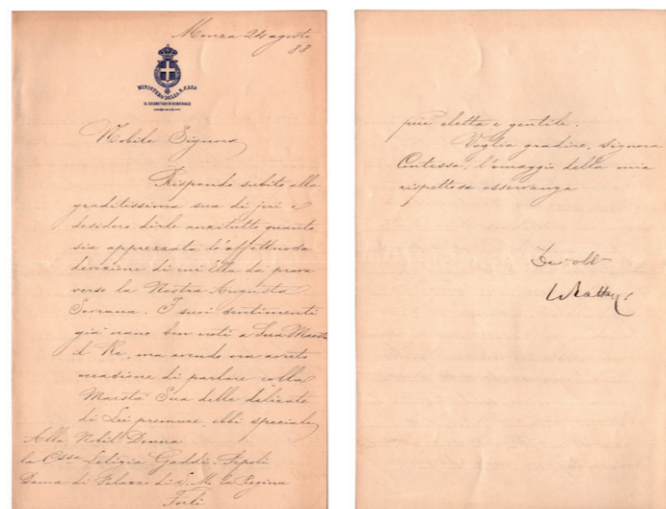 Monza 24 agosto
88
MINISTERO DELLA R. CASA
IL SEGRETARIO GENERALE
Nobile Signora
Rispondo subito alla
graditissima sua di jeri e
desidero dirle anzitutto quanto
sia apprezzata l'affettuosa
devozione di cui Ella dà prova
verso la Nostra Augusta
Sovrana. I suoi sentimenti
già erano ben noti a Sua Maestà
il Re, ma avendo ora avuto
occasione di parlare colla
Maestà Sua delle delicate
di Lei premure, ebbi speciale
Alla Nobil Donna
la Cssa Letizia Gaddi-Pepoli
Dama di Palazzo di S. M. la Regina
Forlì
più eletta e gentile.
Voglia gradire, Signora
Contessa, l'omaggio della mia
rispettosa osservanza
Devott
URattazzi